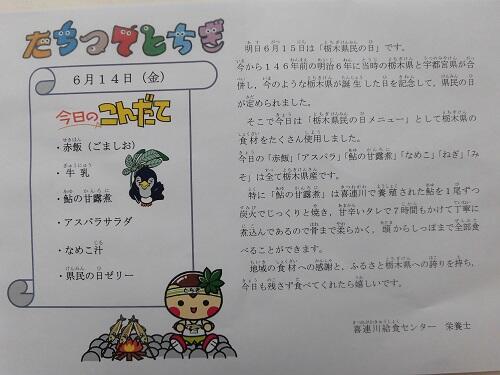 たちつてとちぎ
６月１４日（金）
今日のこんだて
・赤飯（ごましお）
・牛乳
・鮎の甘露煮
・アスパラサラダ
・なめこ汁
・県民の日ゼリー
明日６月１５日は「栃木県民の日」です。
今から１４６年前の明治６年に当時の栃木県と宇都宮県が合
併し、今のような栃木県が誕生した日を記念して、県民の日
が定められました。
そこで今日は「栃木県民の日メニュー」として栃木県の
食材をたくさん使用しました。
今日の「赤飯」「アスパラ」「鮎の甘露煮」「なめこ」「ねぎ」「み
そ」は全て栃木県産です。
特に「鮎の甘露煮」は喜連川で養殖された鮎を１尾ずつ
炭火でじっくりと焼き、甘辛いタレで７時間もかけて丁寧に
煮込んであるので骨まで柔らかく、頭からしっぽまで全部食
べることができます。
地域の食材への感謝と、ふるさと栃木県への誇りを持ち、
今日も残さず食べてくれたら嬉しいです。
喜連川給食センター　栄養士